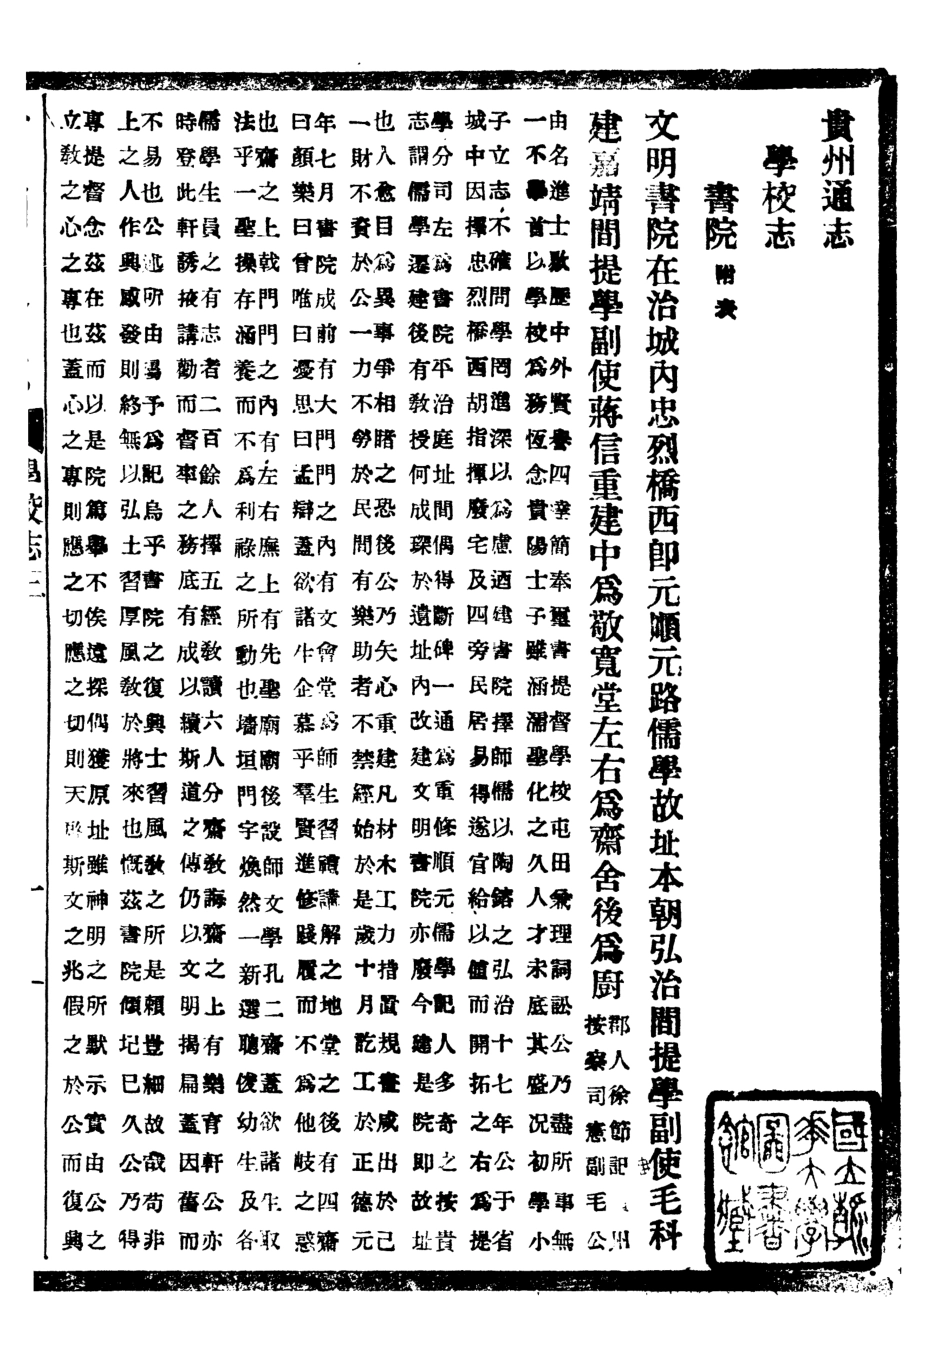 貴州通志
學校志
書院 附表
文明書院在治城內忠烈橋西卽元順元路儒學故址本朝弘治間提學副使毛科
建嘉靖間提學副使蔣信重建中爲敬寬堂左右爲齋舍後爲廚 郡人徐節記 州
按察司憲副毛公
由名進士歇歷中外賢譽四達簡奉璽書提督學校屯田兼理詞訟公乃盡所事無
一不舉首以學校爲務恆念貴陽士子雖涵濡聖化之久人才未底其盛况初學小
子立志不確問學罔進深以爲慮迺建書院擇師儒以陶鎔之弘治十七年公于省
城中因擇忠烈橋西胡指揮廢宅及四旁民居易得遂官給以值而開拓之右爲提
學分司左爲書院平治庭址間偶得斷碑一通爲重修順元儒學記人多奇之按貴
志謂儒學遷建後有教授何成琛於遺址內改建文明書院亦廢今建是院即故址
也人愈目爲異事爭相睹之恐後公乃矢心重建凡材木工力措置規畫咸出於己
一財不賚於公一力不勞於民間有樂助者不禁經始於是歲十月訖工於正德元
年七月書院成前有大門門之內有文會堂爲師生習禮講解之地堂之後有四齋
曰顏樂曰曾唯曰憂思曰孟辯蓋欲諸生企慕乎羣賢進修踐履而不爲他岐之惑
也齋之上戟門門之內有左右廡上有先聖廟廟後設師文學孔二齋蓋欲諸生取
法乎一聖操存涵養而不爲利祿之所動也墻垣門字煥然一新選聰俊幼生及各
儒學生員之有志者二百餘人擇五經教讀六人分齋教誨齋之上有樂育軒公亦
時登此軒誘掖講勸而督率之務底有成以續斯道之傳仍以文明揭扁蓋因舊而
不易也公述所由屬予爲記烏乎書院之復興士習風教之所是賴豈細故哉苟非
上之人作興感發則終無以弘土習厚風教於將來也慨茲書院傾圮已久公乃得
專提督念茲在茲而以是院篤舉不俟遠探偶獲原址雖神明之所默示實由公之
立教之心之專也蓋心之專則應之切應之切則天啓斯文之兆假之於公而復興
學校志三
一
國立
大學
圖書
館藏